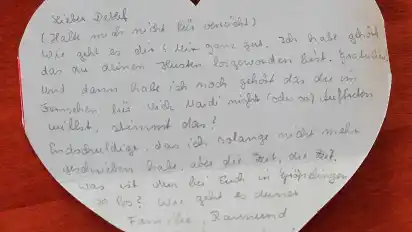 Lieber Detlef
(Halte mich nicht für verrückt)
Wie geht es dir? Mir ganz gut. Ich habe gehört
das du deinen Husten losgeworden bist.
Und dann habe ich noch gehört das du im
Fernsehen bei (oder so) auftreten
willst, stimmt das?
Endschuldige, das ich solange nicht mehr
geschrieben habe, aber die Zeit, die Zeit.
Was ist denn bei Euch in Göppingen
so los? Wie geht es deiner
Familie, Raimund